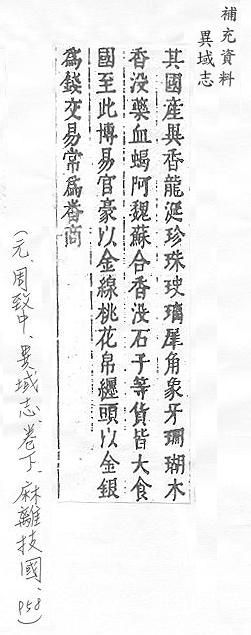 補充資料
異域志
其國產與香龍涎珍珠玻璃犀角象牙珊瑚木
香沒藥血蝎阿魏蘇合香沒石子等貨皆大食
國至此博易官豪以金線桃花帛纏頭以金銀
為錢交易常為番商
(元、周致中、異域志、卷下、麻離技國、P58)